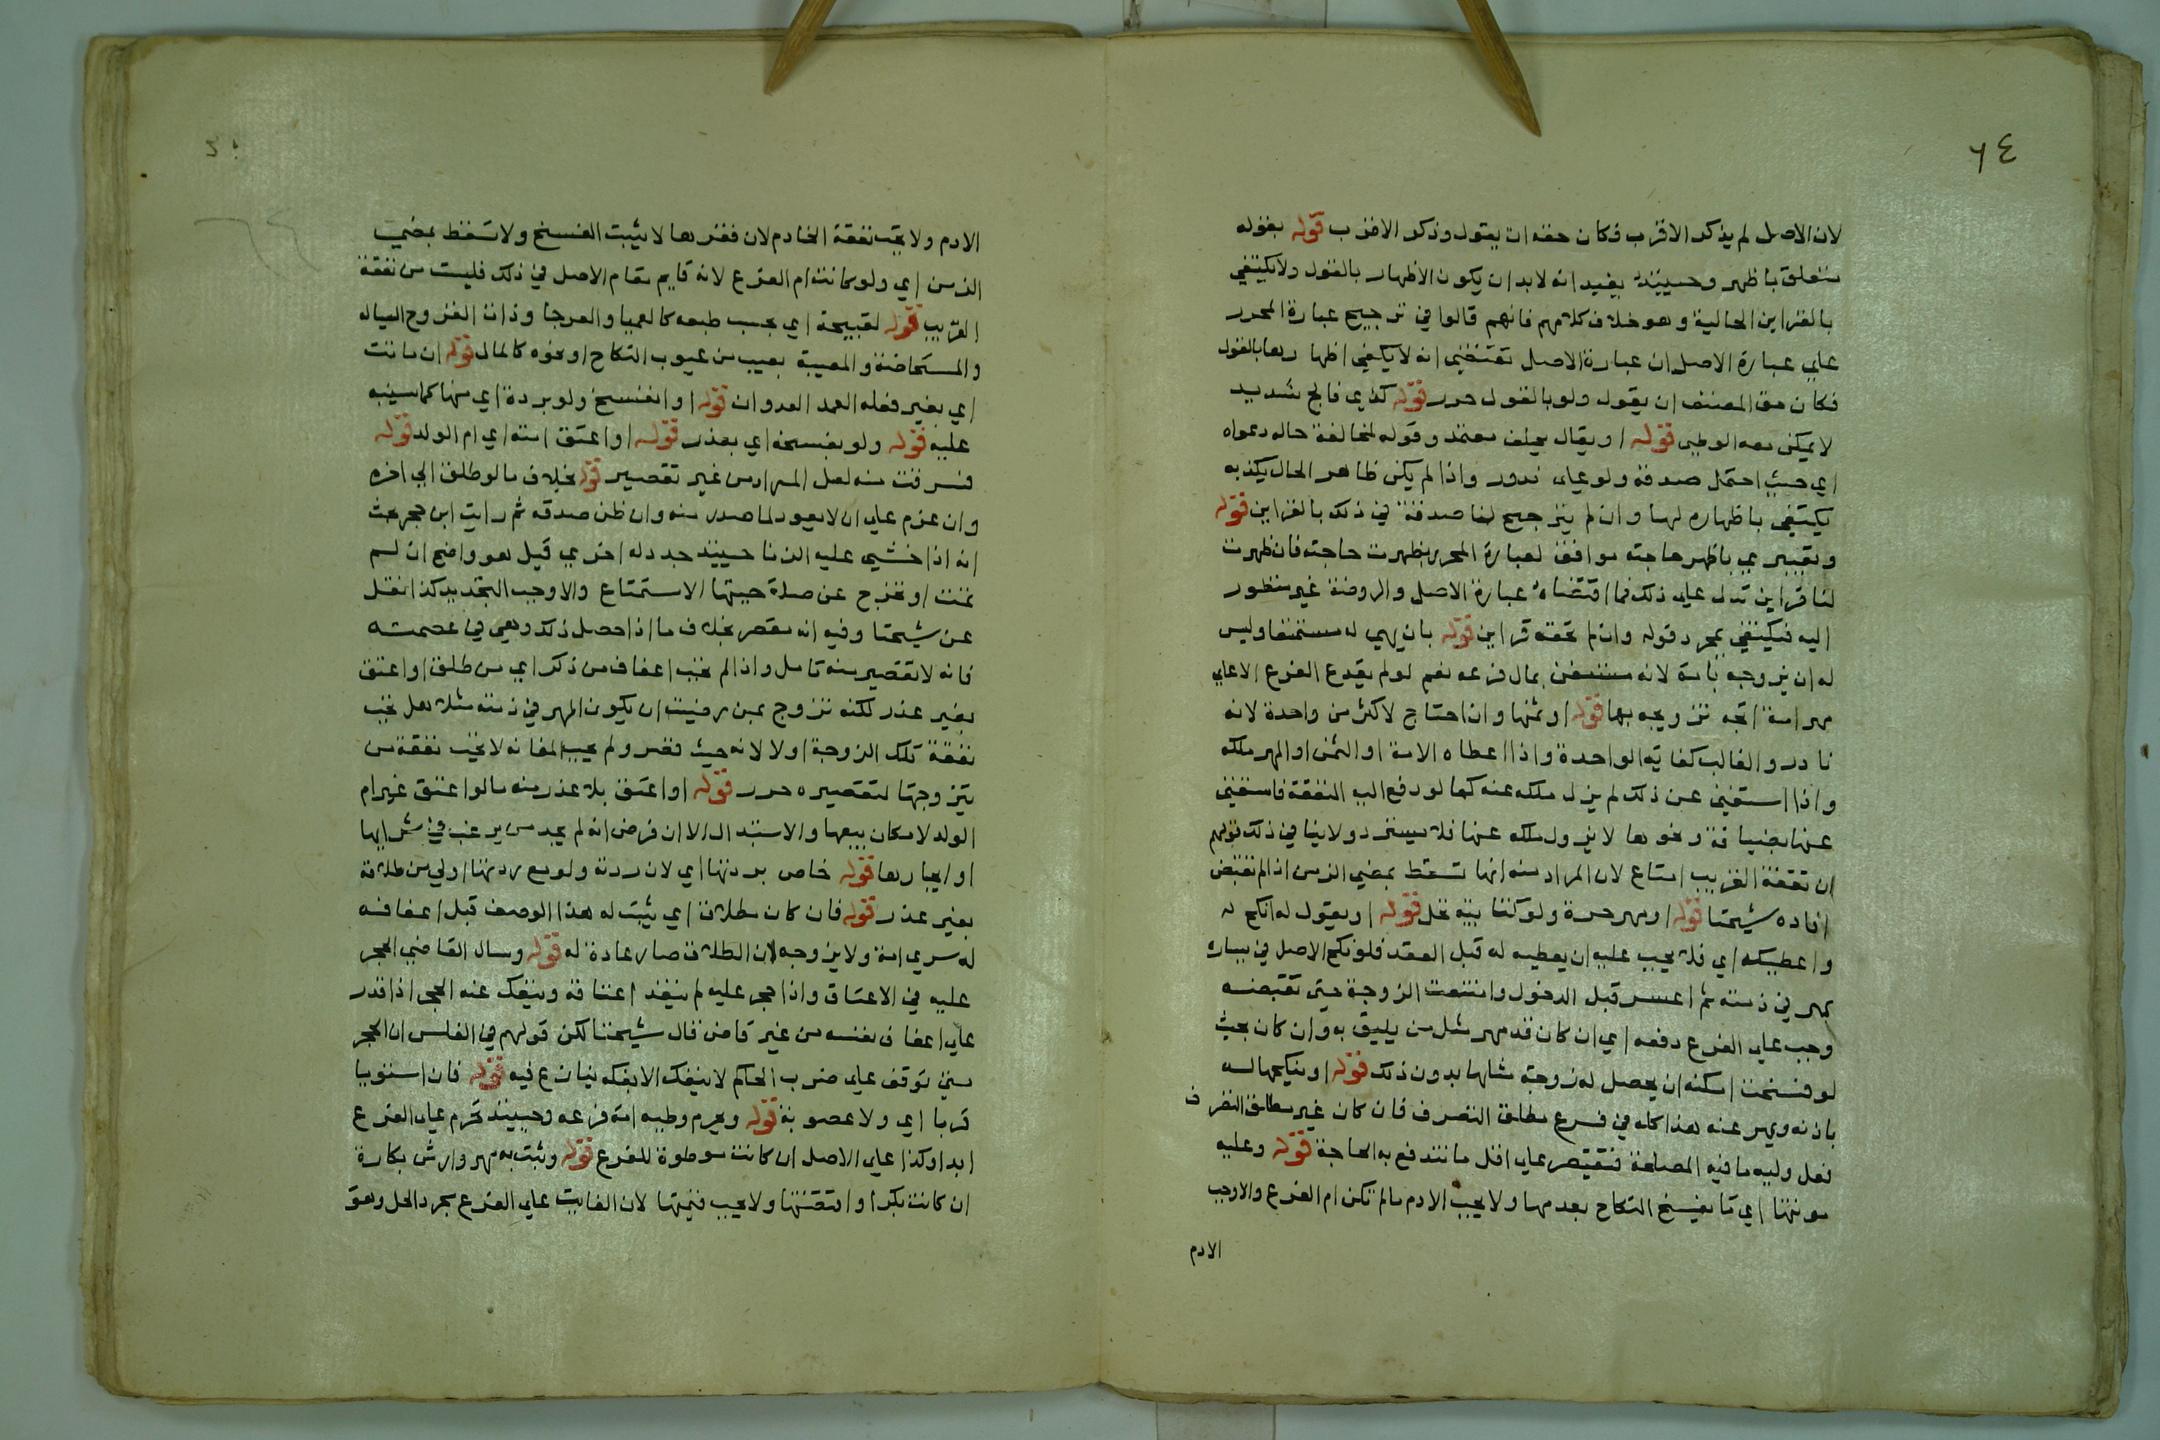 ٦٤
لان الاصل لم يذكر الاقرب فكان حقه ان يقول وذكر الاقرب قوله بقوله
متعلق باظهر وحينيذ يفيد انه لا بد ان يكون الاظهار بالقول ولا يكتفي
بالقراين الحالية وهو خلاف كلامهم فانهم قالوا في ترجيح عبارة المحرر
علي عبارة الاصل ان عبارة الاصل تقتضي انه لا يكفي اظهارها بالقول
فكان حق المصنف ان يقول ولو بالقول حرر قوله كذي فالج شديد
لا يمكن معه الوطي قوله او يقال يحلف معتمد وقوله لمخالفة حاله دعواه
اي حيث احتمل صدقه ولو علي ندور واذا لم يكن ظاهر الحال يكذبه
يكتفي باظهاره لها وان لم يترجح لنا صدقه في ذلك بالقراين قوله
وتعبيري باظهر حاجته موافق لعبارة المحرر بظهرت حاجته فان ظهرت
لنا قراين تدل علي ذلك فما اقتضاه عبارة الاصل والروضة غير منظور
اليه فيكتفي بمجرد قوله وان لم تحفه قراين قوله بان يهي له مستمتعا وليس
له ان يزوجه بامة لانه مستغن بمال فرعه نعم لو لم يقدر الفرع الا علي
مهر امة اتجه تزويجه بها قوله او ثمنها وان احتاج لاكثر من واحدة لانه
نادر والغالب كفاية الواحدة واذا اعطاه الامة او الثمن او المهر ملكه
واذا استغني عن ذلك لم يزل ملكه عنه كما لو دفع اليه النفقة فاستغني
عنها بضيافة ونحوها لا يزول ملكه عنها فلا يسترد ولا ينافي ذلك قولهم
ان نفقة القريب امتاع لان المراد منه انها تسقط بمضي الزمن اذا لم تقبض
افاده شيخنا قوله او مهر حرة ولو كتابية نحل قوله او يقول له انكح
واعطيكه اي فلا يجب عليه ان يعطيه له قبل العقد فلو نكح الاصل في يساره
بمهر في ذمته ثم اعسر قبل الدخول وامتنعت الزوجة حتي تقبضه
وجب علي الفرع دفعه اي ان كان قدر مهر مثل من يليق به وان كان بحيث
لو فسخت امكنه ان يحصل له زوجة مثلها بدون ذلك قوله او ينكحها له
باذنه ويمهر عنه هذا كله في فرع مطلق التصرف فان كان غير مطلق التصرف
فعل وليه ما فيه المصلحة فيقتصر علي اقل ما تندفع به الحاجة قوله وعليه
مونتها اي ما يفسخ النكاح بعدمها ولا يجب الادم ما لم تكن ام الفرع والاوجب
الادم
الادم ولا تجب نفقة الخادم لان فقدها لا يثبت الفسخ ولا تسقط بمضي
الزمن اي ولو كانت ام الفرع لانه قايم مقام الاصل في ذلك فليست من نفقة
القريب قوله لقبيحة اي بحسب طبعه كالعميا والعرجا وذات القروح السيالة
والمستحاضة والمعيبة بعيب من عيوب النكاح او نحوه كالمال قوله ان ماتت
اي بغير فعله العمد العدوان قوله او انفسخ ولو بردة اي منها كما سينبه
عليه قوله ولو بفسخه اي بعذر قوله او اعتق امته اي ام الولد قوله
فسرقت منه لعل المراد من غير تقصير قوله بخلاف ما لو طلق الي اخره
وان عزم علي ان لا يعود لما صدر منه وان ظن صدقه ثم رايت ابن حجر بحث
انه اذا خشي عليه الزنا حينيذ جدد له اخري قيل هو واضح ان لم
تمت او تخرج عن صلاحيتها الاستمتاع والاوجب التجديد كذا نقل
عن شيخنا وفيه انه مقصر بخلاف ما اذا حصل ذلك وهي في عصمته
فانه لا تقصير منه تامل واذا لم نجب اعفاف من ذكر اي من طلق او اعتق
بغير عذر لكنه تزوج بمن رضيت ان يكون المهر في ذمته مثلا هل تجب
نفقة تلك الزوجة او لا لانه حيث قصر ولم يجب اعفافه لا تجب نفقة من
يتزوجها لتقصيره حرر قوله او اعتق بلا عذر منه ما لو اعتق غير ام
الولد لامكان بيعها والاستبدال الا ان فرض انه لم يجد من يرغب في شرايها
او ايجارها قوله خاص بردتها اي لان ردته ولو مع ردتها اولي من طلاقه
بغير عذر قوله فان كان مطلاقا اي يثبت له هذا الوصف قبل اعفافه
له سري امة ولا يزوجه لان الطلاق صار عادة له قوله وسال القاضي الحجر
عليه في الاعتاق واذا حجر عليه لم ينفذ اعتاقه وينفك عنه الحجر اذا قدر
علي اعفاف نفسه من غير قاض قال شيخنا لكن قولهم في الفلس ان الحجر
متي توقف علي ضرب الحاكم لا ينفك الا بفكه ينازع فيه قوله فان استويا
قربا اي ولا عصوبة قوله ويحرم وطيه امة فرعه وحينيذ تحرم علي الفرع
ابدا وكذا علي الاصل ان كانت موطوة للفرع قوله وثبت به مهر وارش بكارة
ان كانت بكرا وافتضها ولا يجب قيمتها لان الفايت علي الفرع مجرد الحل وهو